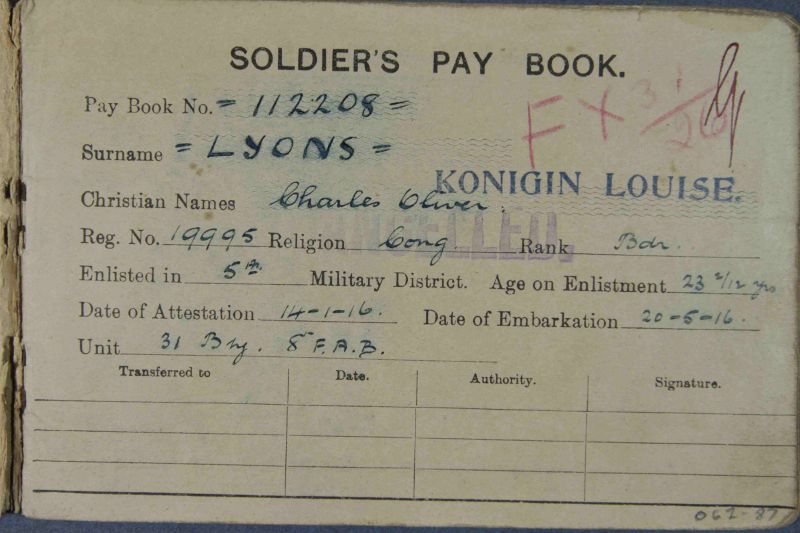 SOLDIER'S PAY BOOK.
Pay Book No. = 112208 =
FX 31/26
Surname = LYONS =
KONIGIN LOUISE.
Christian Names Charles Oliver.
CANCELLED.
Reg. No. 19995 Religion Cong. Rank Bdr.
Enlisted in 5th Military District. Age on Enlistment 23 2/12 yrs
Date of Attestation 14-1-16. Date of Embarkation 20-5-16.
Unit 31 Bty. 8th F.A.B.
Transferred to Date. Authority. Signature.
062-87